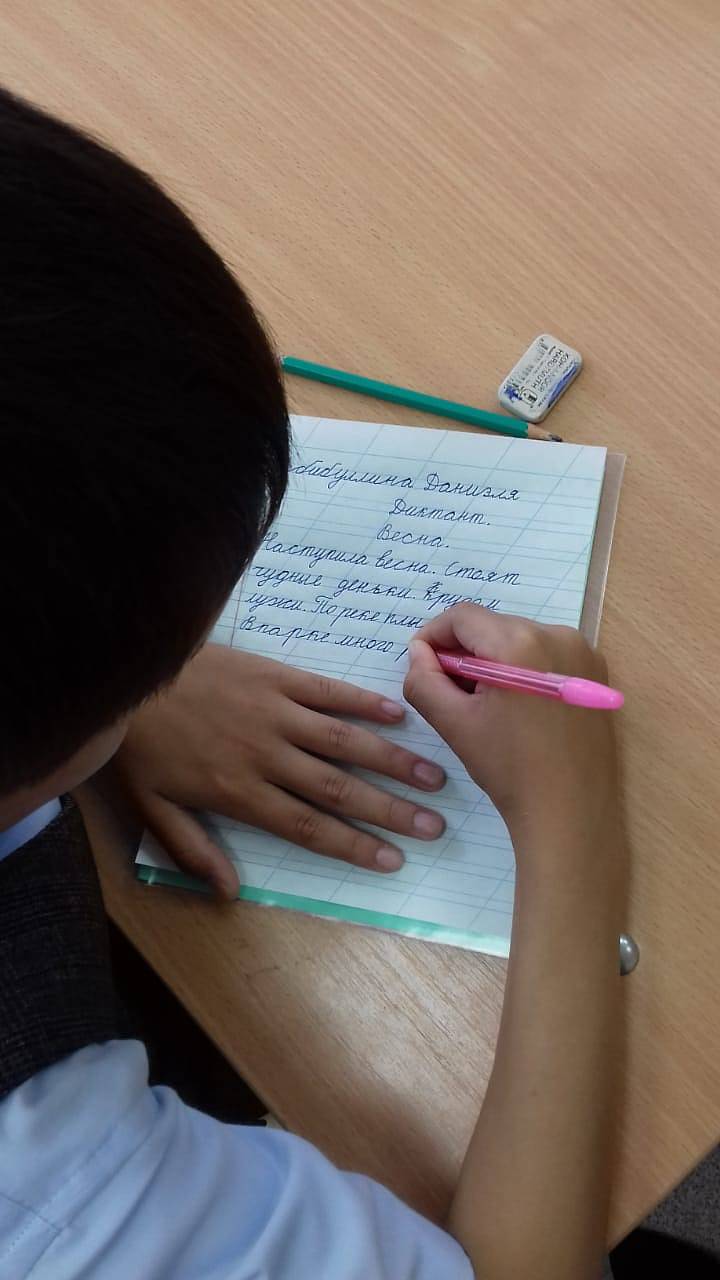 бибуллина Даниэля
Диктант.
Весна.
Наступила весна. Стоят
чудные деньки. Кругом
лужи. По реке плы
В парке много
KOH-I-NOOR
HARDTMUTH